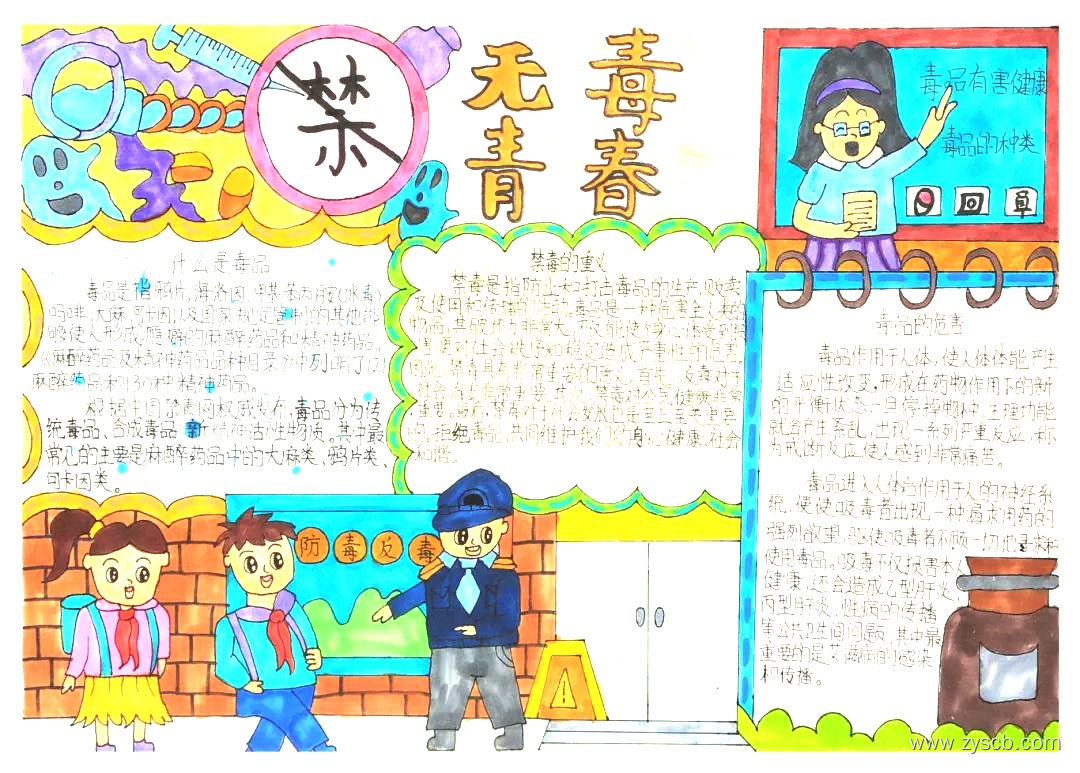 禁
无毒
青春
毒品有害健康
毒品的种类
什么是毒品
毒品是指鸦片、海洛因、甲基苯丙胺(冰毒)
吗啡、大麻、可卡因以及国家规定管制的其他能
够使人形成瘾癖的麻醉药品和精神药品。
《麻醉药品及精神药品品种目录》中列明了121
麻醉药品和130种精神药品。
根据中国禁毒网权威发布,毒品分为传
统毒品、合成毒品、新精神活性物质。其中最
常见的主要是麻醉药品中的大麻类、鸦片类、
可卡因类。
禁毒的重义
禁毒是指防止和打击毒品的生产、贩卖
及使用和传播的活动。毒品是一种危害全人类的
物品,其破坏力非常大,不仅能使个身心体受到
要对社会秩序和稳定造成严重性的危害
因此,禁毒具有非常重要的意义。首先,反毒对于
社会
重要。最后,禁毒对于对家发展也是至关重要
的。拒绝毒品,共同维护我们的身心健康、社会
和谐。
毒品的危害
毒品作用于人体,使人体体能产生
适应性改变,形成在药物作用下的新
的平衡状态一旦停掉物种,生理功能
就会产生紊乱,出现一系列严重反应,称
为戒断反应使人感到非常痛苦。
毒品进入人体后作用于人的神经系
统,使使吸毒者出现一种渴求用药的
强烈欲望,驱使吸毒者不顾一切地寻求和
使用毒品。吸毒不仅损害本人
健康,还会造成乙型肝炎、
丙型肝炎、性病的传播
等公共卫生间问题,其中最
重要的是艾滋病的感染
和传播。
防毒反毒
www.zyscb.com